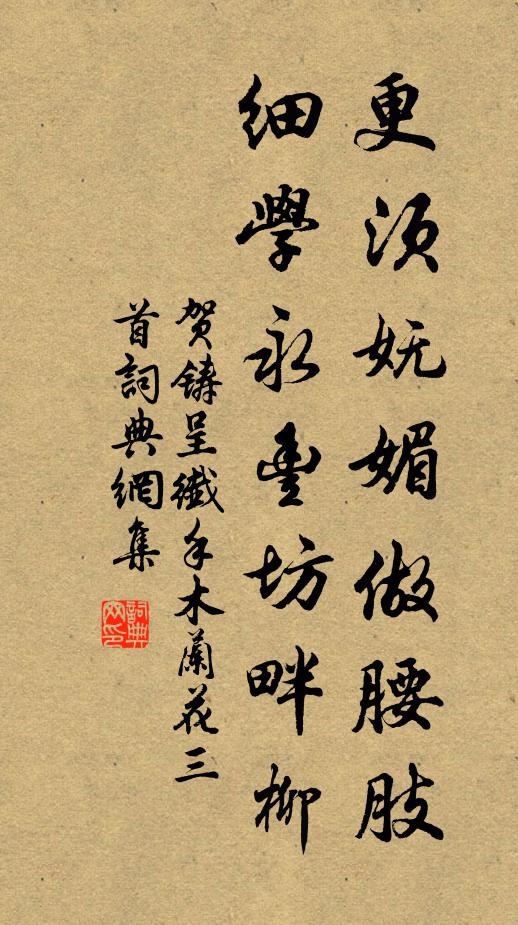 更须妩媚做腰肢
细学永丰坊畔柳
贺铸呈纖手木蘭花三
首詞典網集
詞典网印